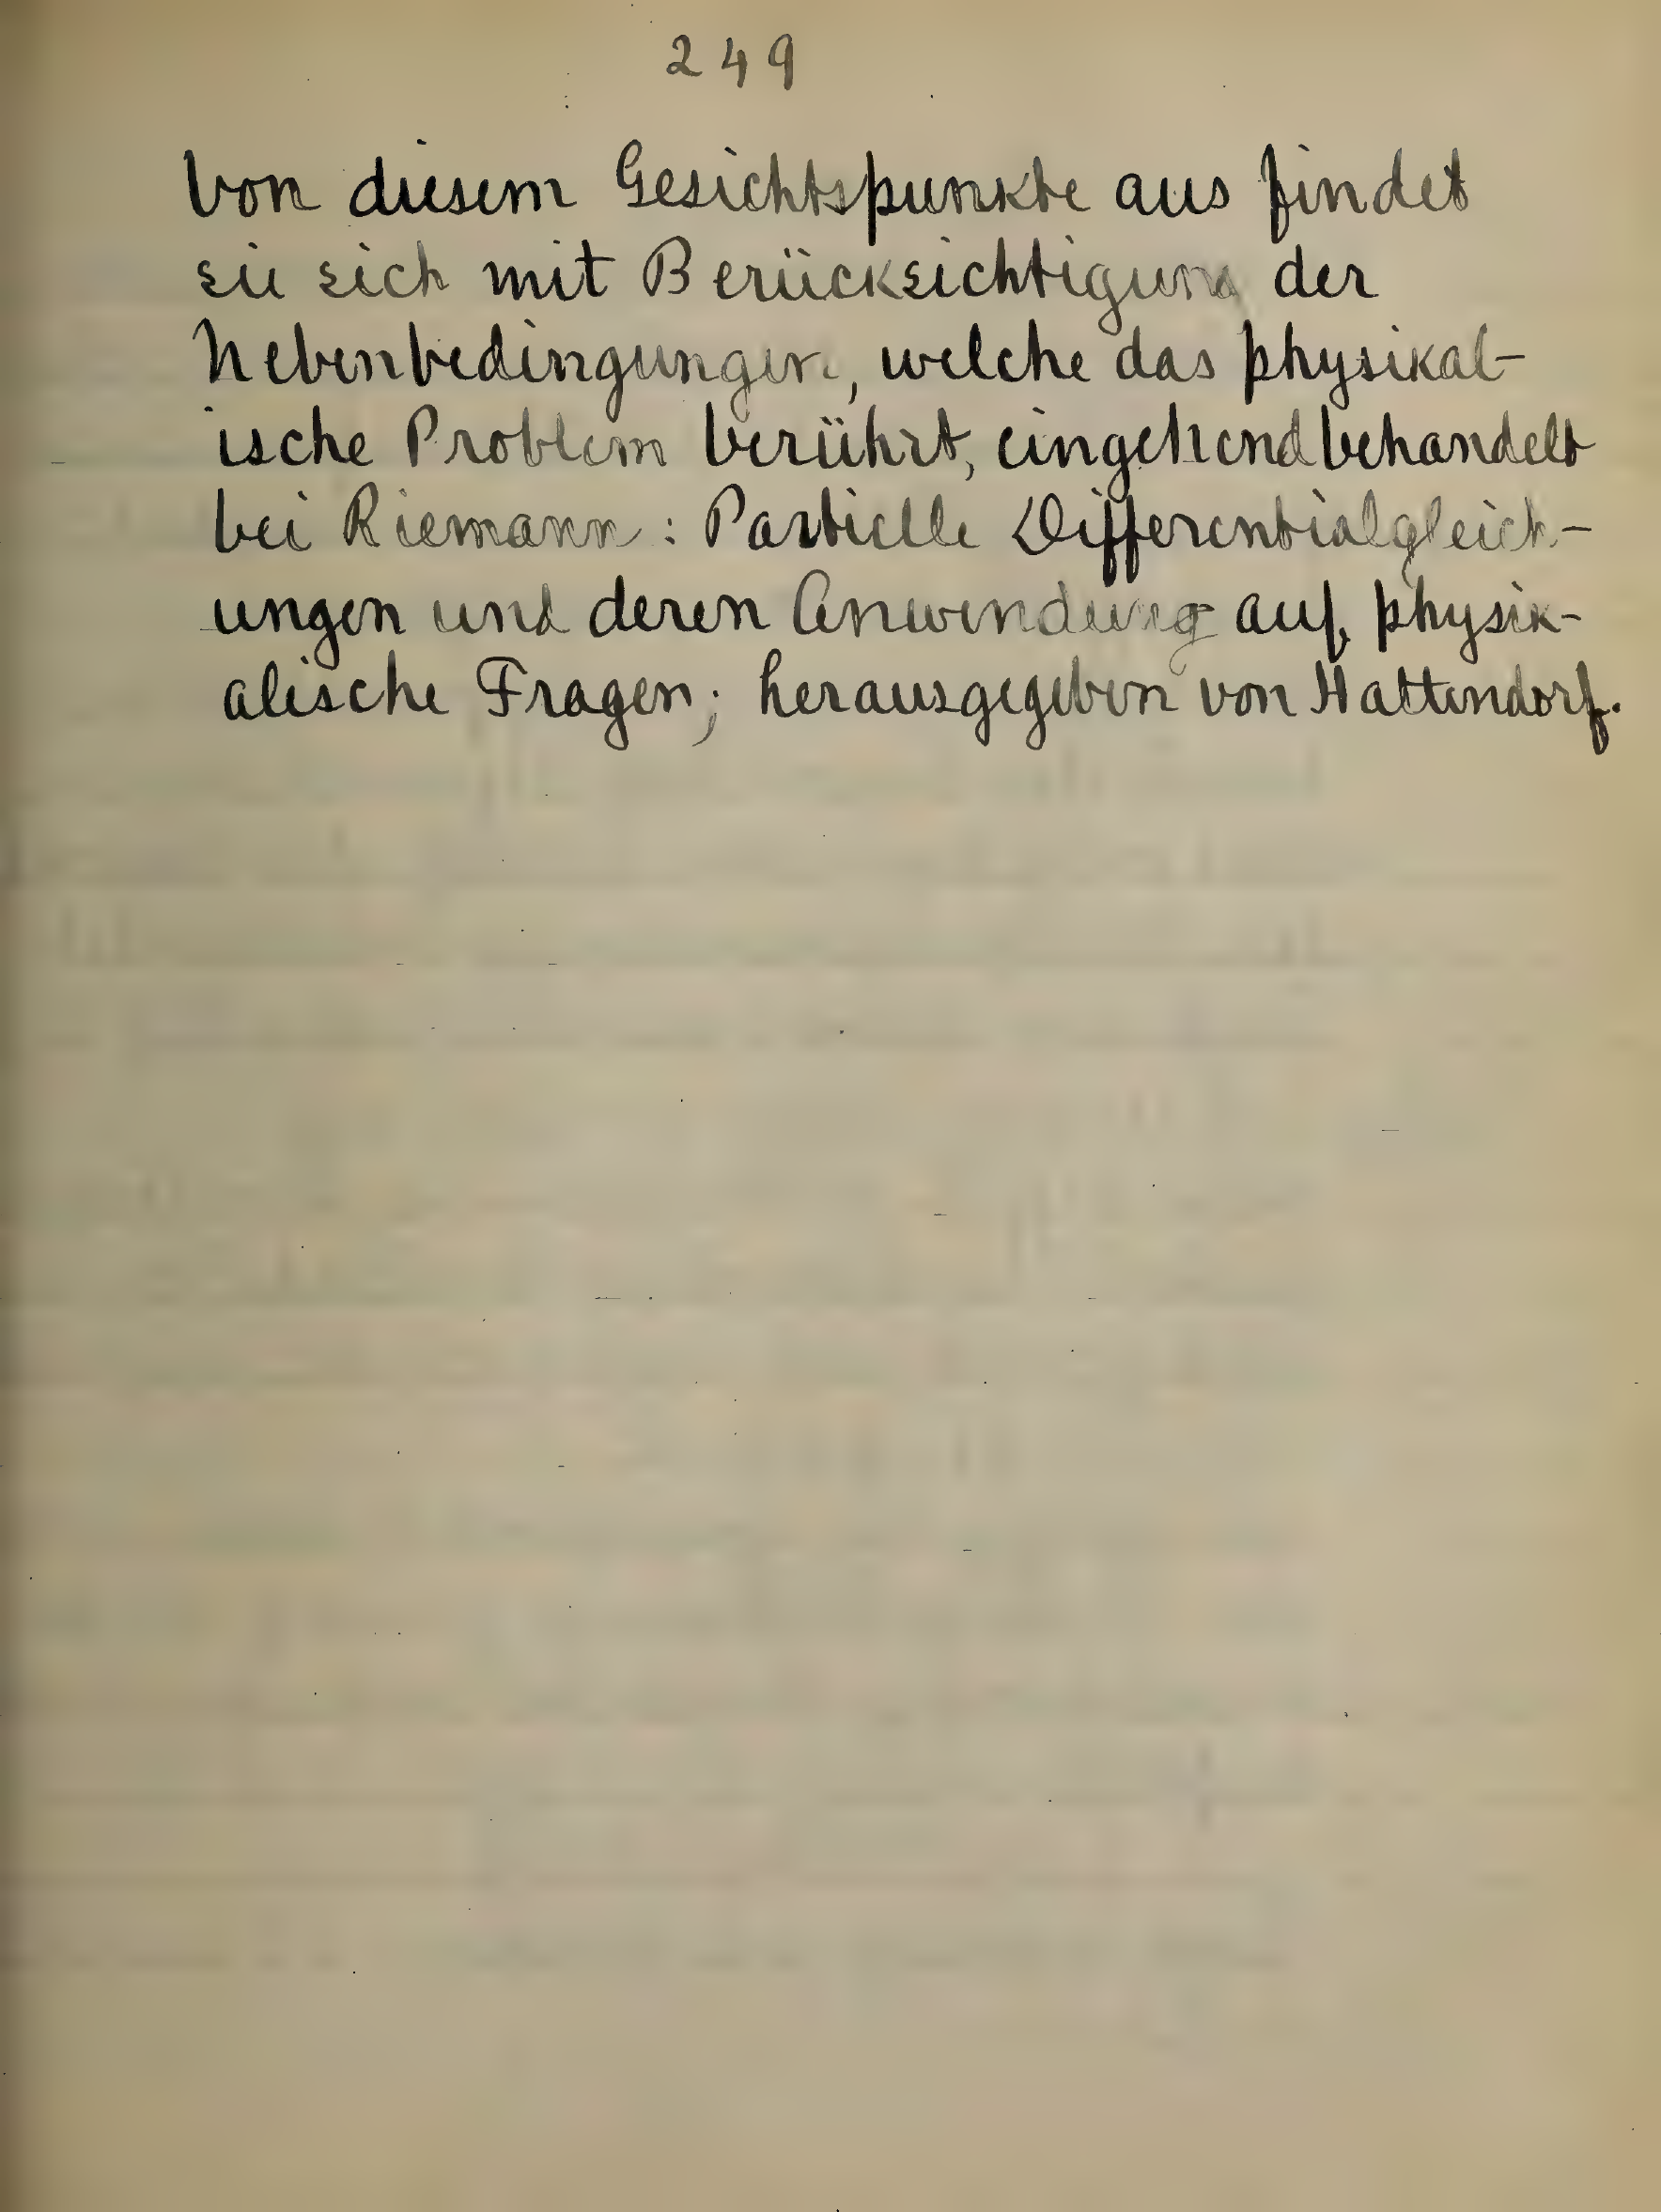 249
Von diesem Gesichtspunkte aus findet
sie sich mit Berücksichtigung der
Nebenbedingungen, welche das physikal-
ische Problem berührt, eingehend behandelt
bei Riemann: Partielle Differentialgleich-
ungen und deren Anwendung auf physik-
alische Fragen; herausgegeben von Hattendorf.